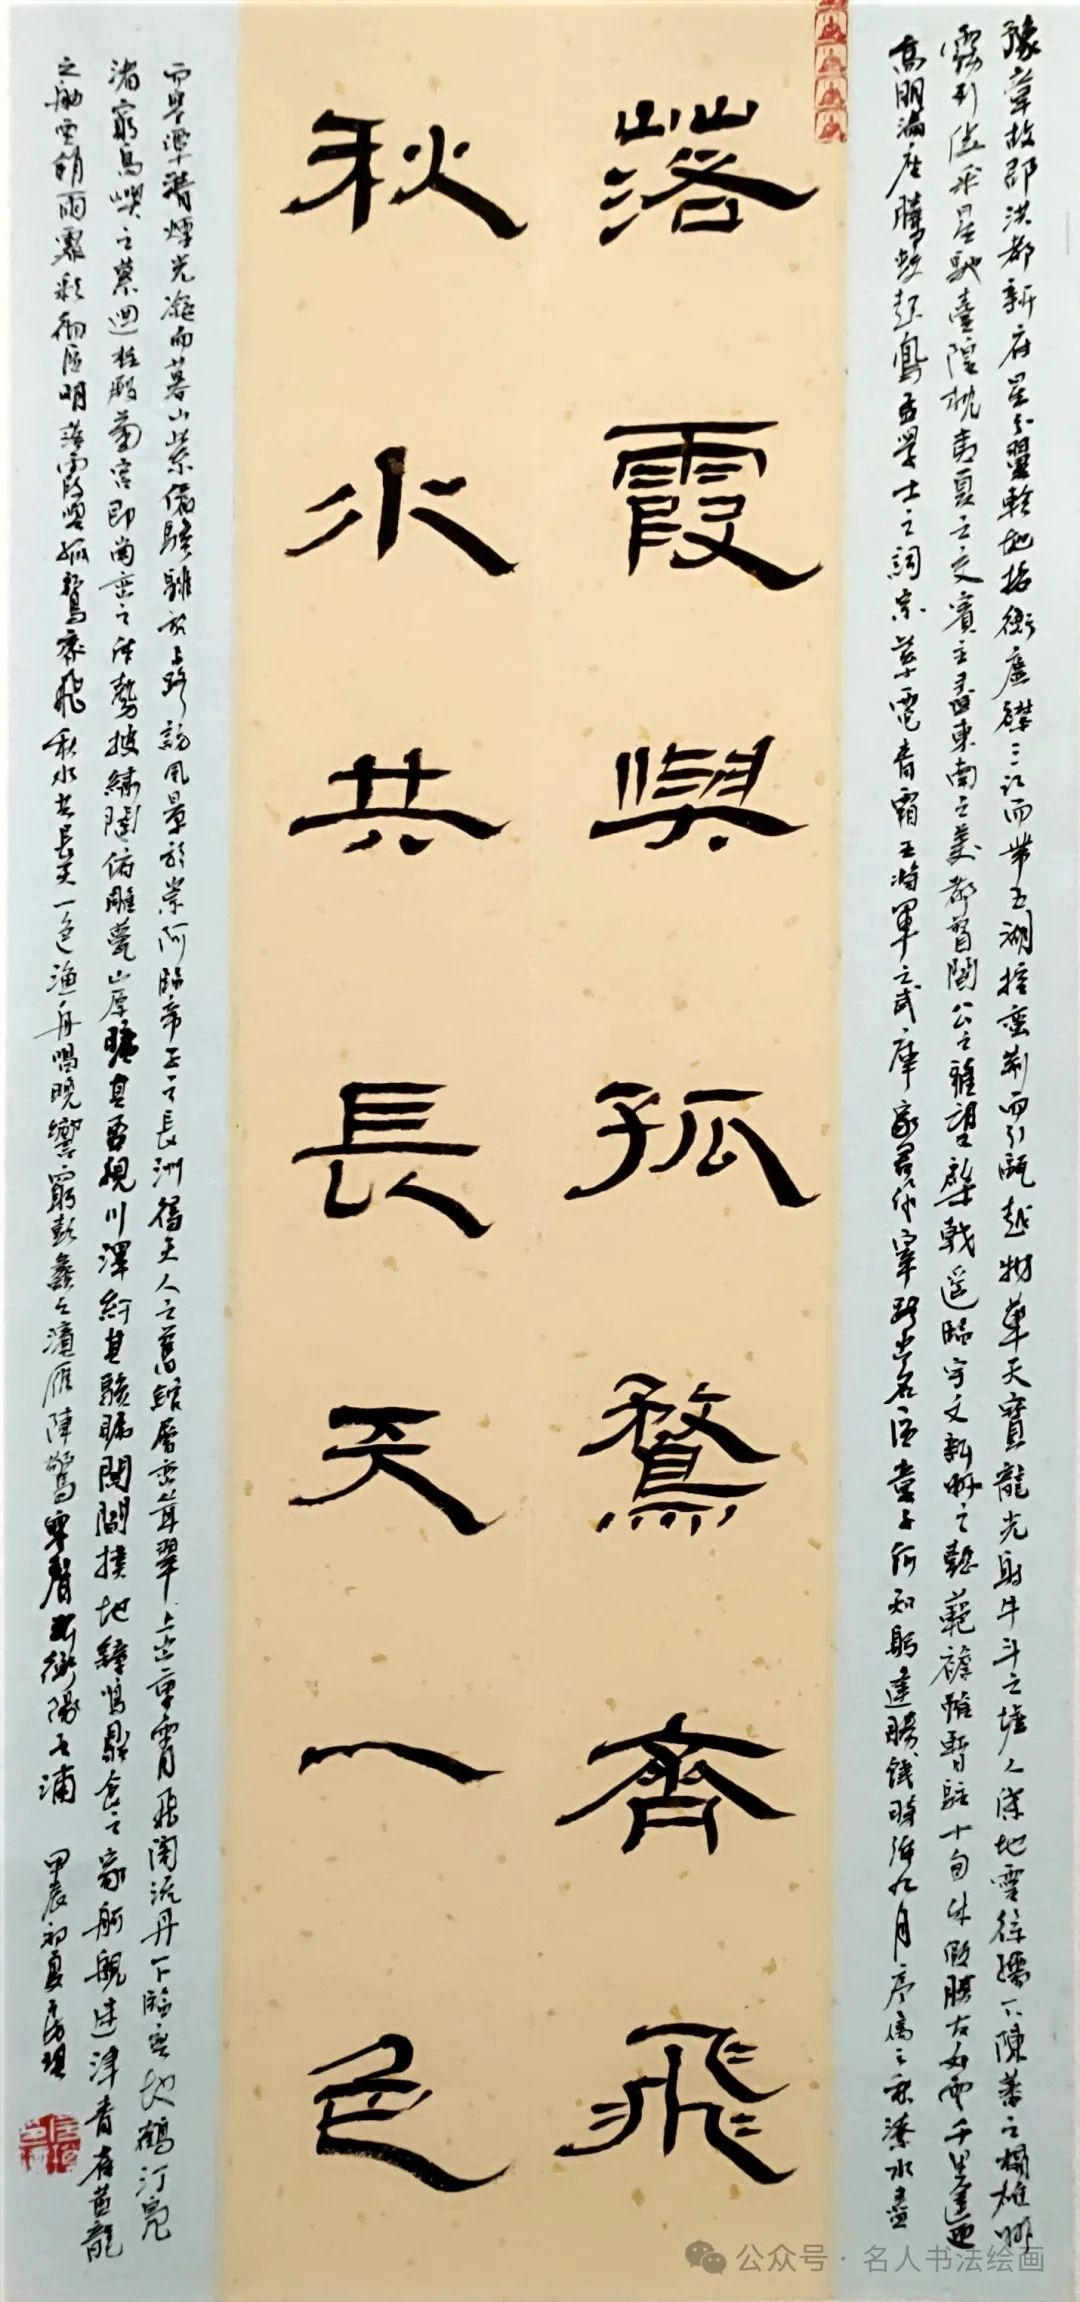 豫章故郡洪都新府星分翼軫地接衡廬襟三江而帶五湖控蠻荊而引甌越物華天寶龍光射牛斗之墟人傑地靈徐孺下陳蕃之榻雄州
霧列俊采星馳臺隍枕夷夏之交賓主盡東南之美都督閻公之雅望棨戟遥臨宇文新州之懿範襜帷暫駐十旬休假勝友如雲千里逢迎
高朋滿座騰蛟起鳳孟學士之詞宗紫電青霜王將軍之武庫家君作宰路出名區童子何知躬逢勝餞時維九月序屬三秋潦水盡
落霞與孤鶩齊飛
秋水共長天一色
而寒潭清煙光凝而暮山紫儼驂騑於上路訪風景於崇阿臨帝子之長洲得天人之舊館層巒聳翠上出重霄飛閣流丹下臨無地鶴汀鳧
渚窮島嶼之縈迴桂殿蘭宮即岡巒之体勢披繡闥俯雕甍山原曠其盈視川澤紆其駭矚閭閻撲地鐘鳴鼎食之家舸艦迷津青雀黃龍
之舳雲銷雨霽彩徹區明落霞與孤鶩齊飛秋水共長天一色漁舟唱晚響窮彭蠡之濱雁陣驚寒聲斷衡陽之浦 甲辰初夏
公众号·名人书法绘画